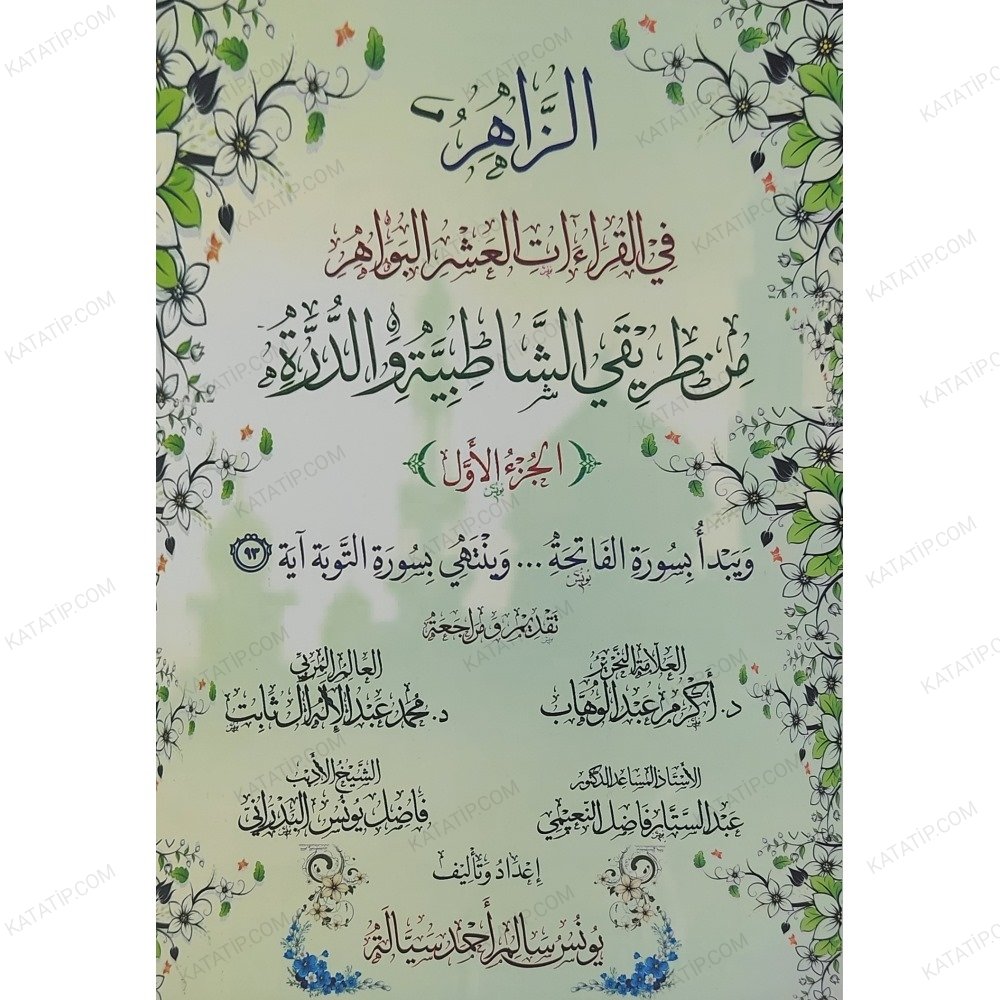 الزَّاهِرُ
فِي القِرَاءَاتِ العَشْرِ البَوَاهِرِ
مِنْ طَرِيقَيِ الشَّاطِبِيَّةِ وَالدُّرَّةِ
الجُزْءُ الأَوَّلُ
وَيَبْدَأُ بِسُورَةِ الفَاتِحَةِ ... وَيَنْتَهِي بِسُورَةِ التَّوْبَةِ آيَة ٩٣
تَقْدِيم وَمُرَاجَعَة
العَلَّامَة النِّحْرِيرُ
العَالِمُ المُرَبِّي
د. أَكْرَم عَبْدالوَهَّاب
د. مُحَمَّد عَبْدالإِلَه آل ثَابِت
الأُسْتَاذ المُسَاعِد الدكتور
الشَّيْخُ الأَدِيب
عَبْد السَّتَّار فَاضِل النُّعَيْمِي
فَاضِل يُونُس البَدْرَانِي
إِعْدَادُ وَتَأْلِيف
يُونُس سَالِم أَحْمَد سَيَالَة
KATATIP.COM